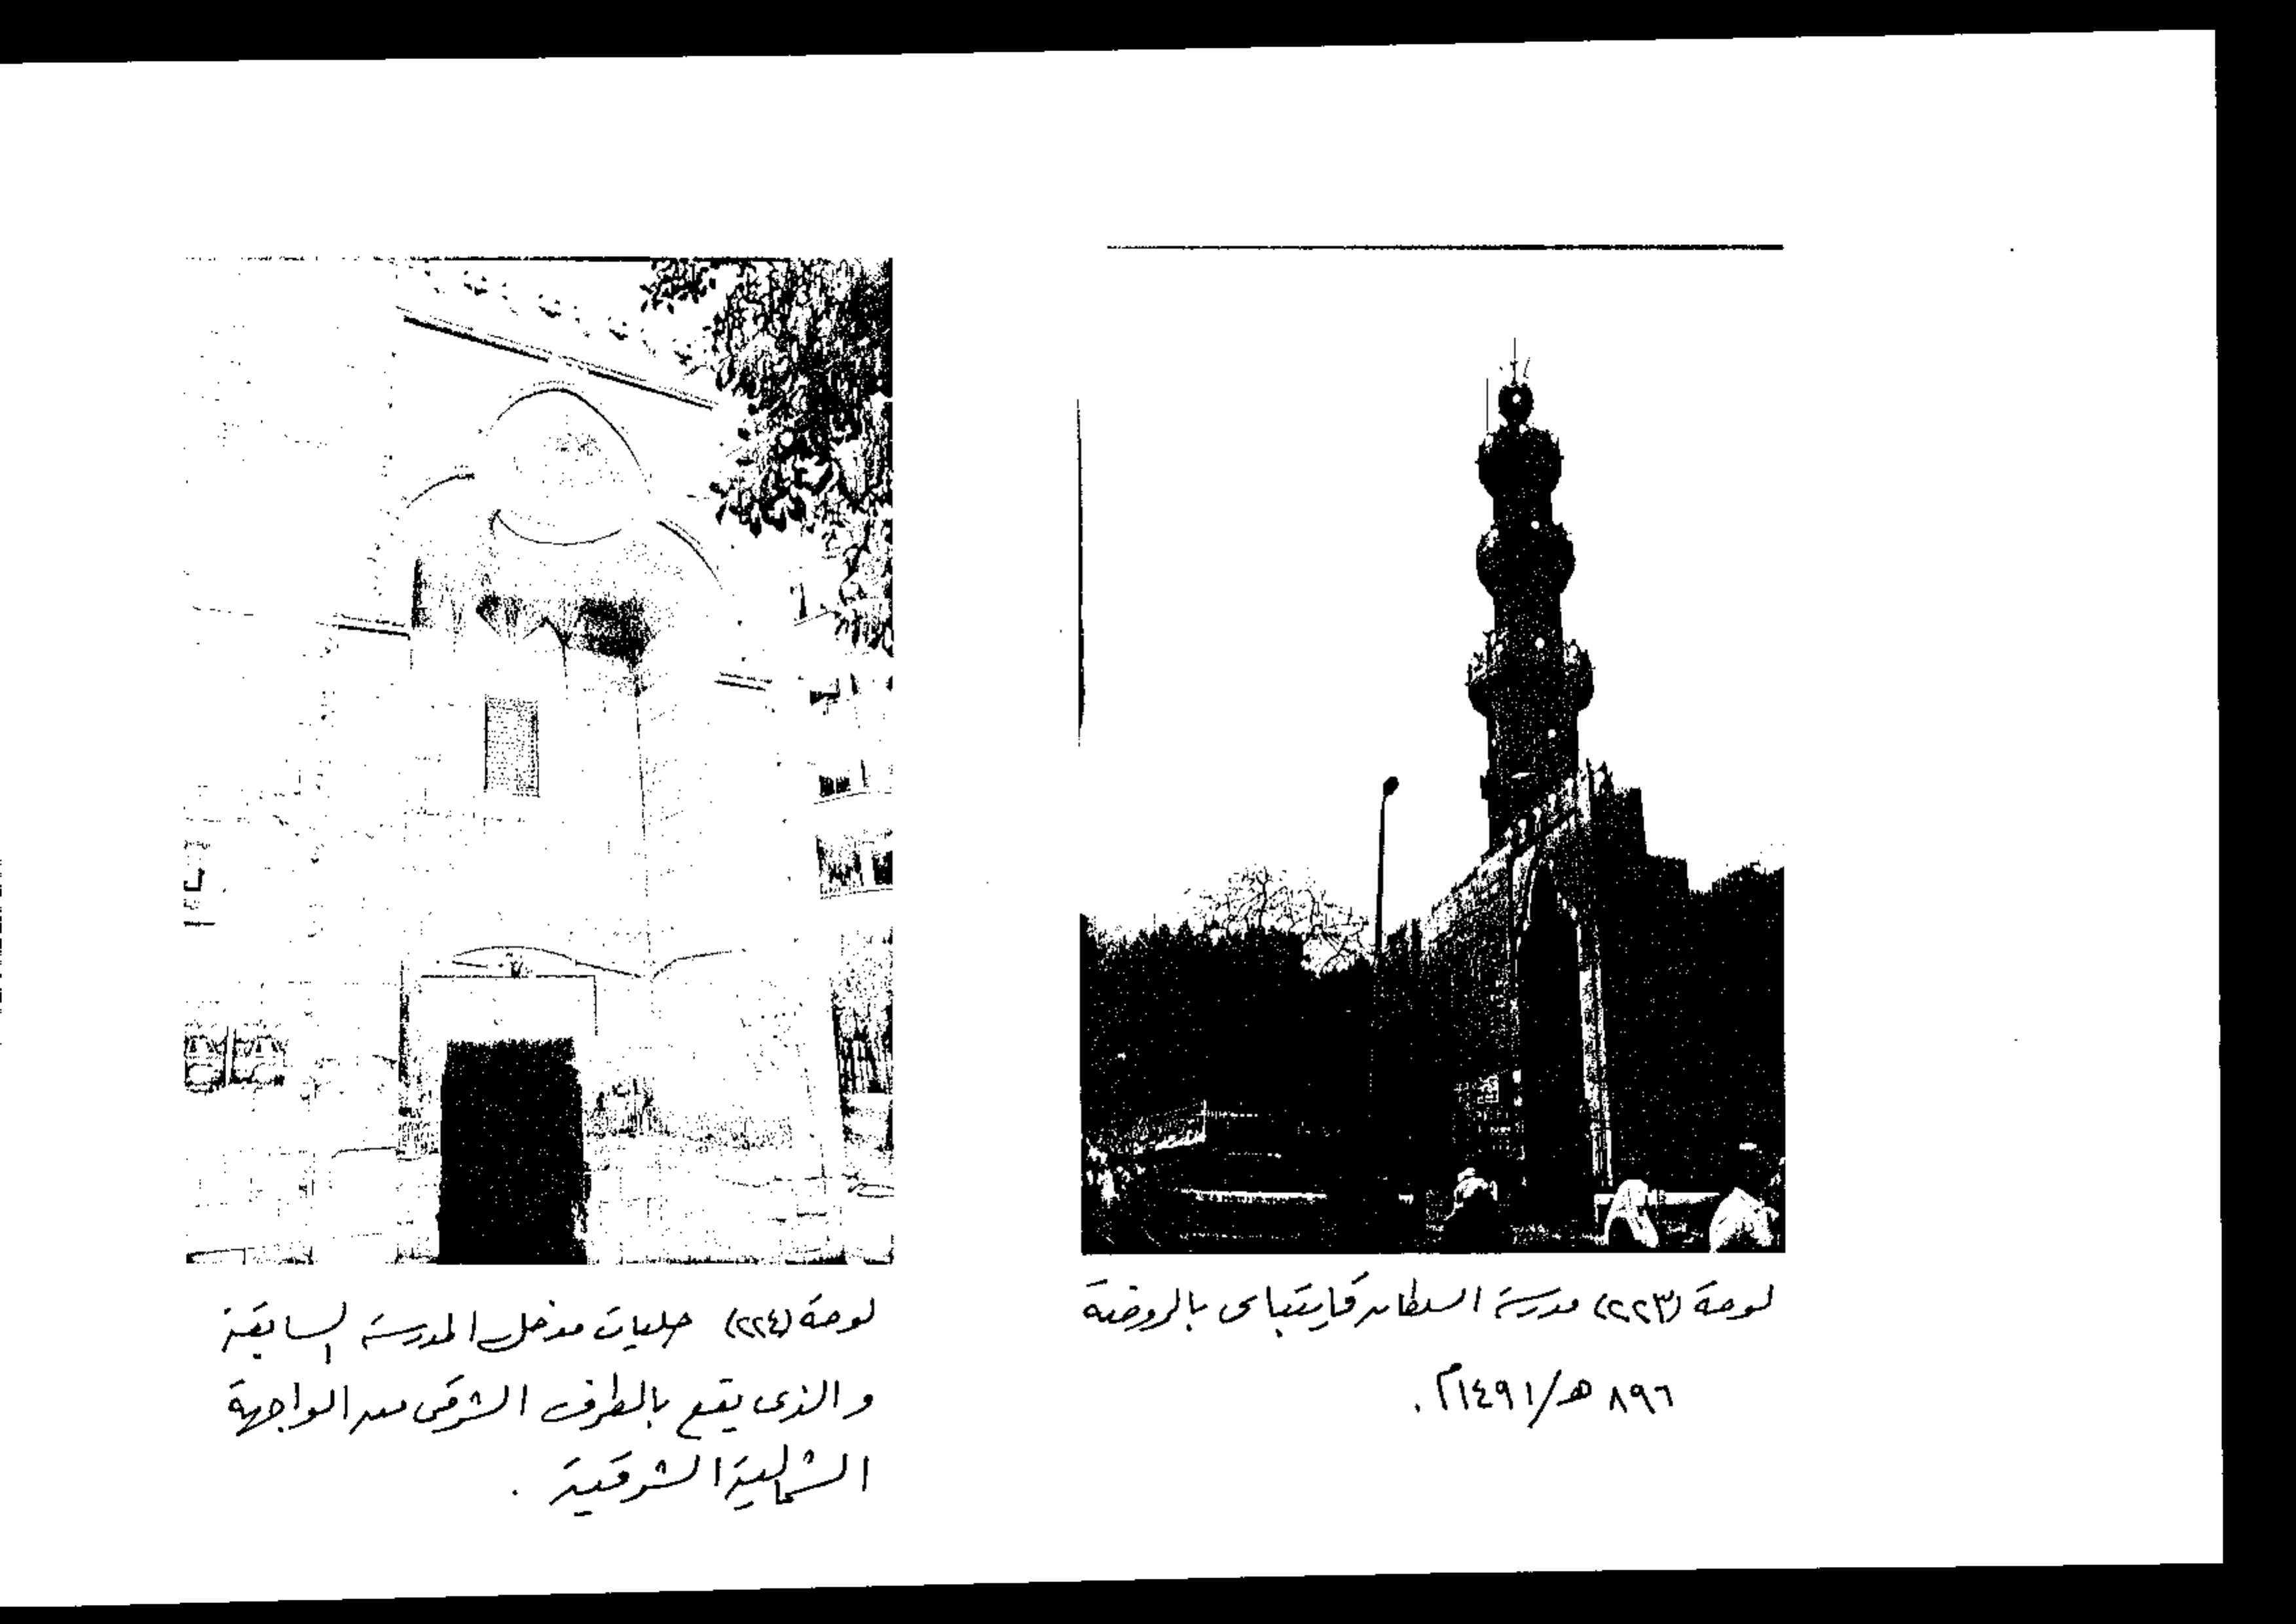 لوحة (٢٢٣) مدرسة السلطان قايتباى بالروضة
٨٩٦ هـ/١٤٩١م.
لوحة (٢٢٤) حليات مدخل المدرسة السابقة
والذى يقع بالطرف الشرقى من الواجهة
الشمالية الشرقية .